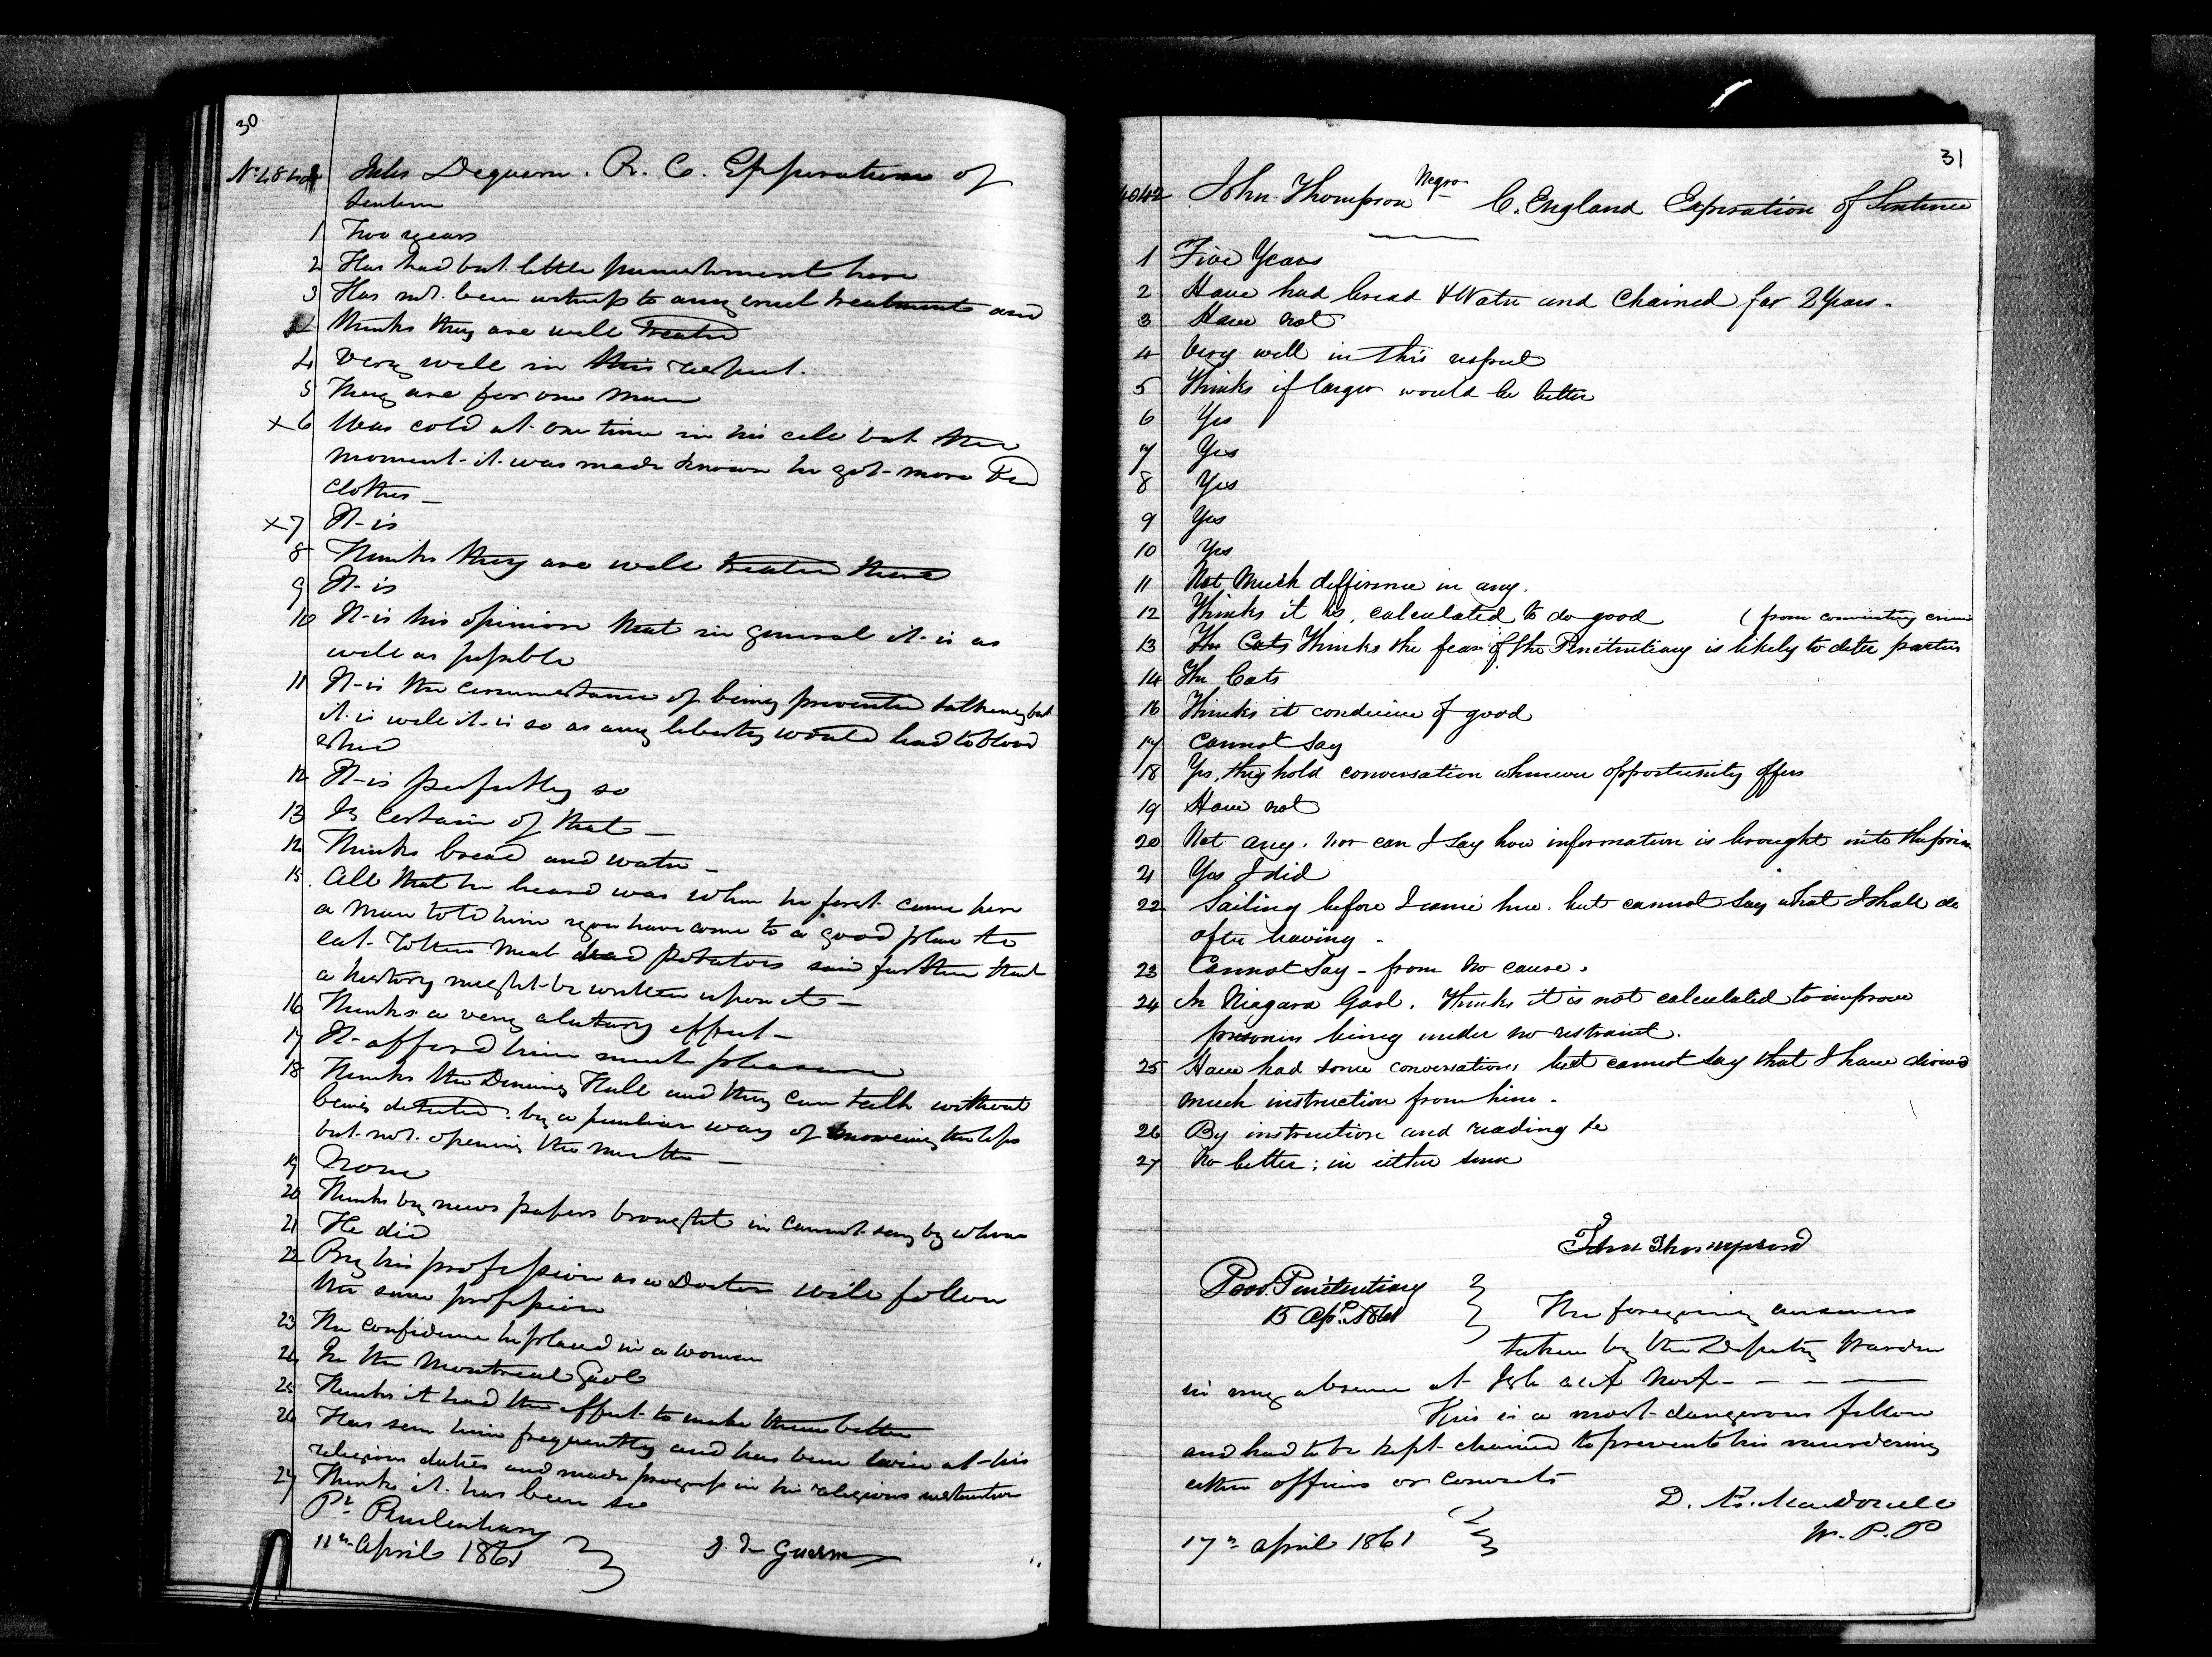 30
Jules Deguern. R. C. Expiration of
Sentence
1 Two years
2 Has had but little punishment here
3 Has not been witness to any cruel treatment and
thinks they are well treated
4 Very well in this respect.
5 They are for one man
x 6 Was cold at one time in his cell but the
moment it was made known he got more Bed
clothes –
x 7 It is
8 Thinks they are well treated there
9 It is
10 It is his opinion that in general it is as
well as possible
11 It is the circumstance of being prevented talking but
it is well it is so as any liberty would lead to blood
shed
12 It is perfectly so
13 Is certain of that –
14 Thinks bread and water –
15 All that he heard was when he first came here
a man told him you have come to a good place to
eat meat and Potatoes said further that
a history might be written upon it –
16 Thinks a very salutary effect –
17 It afford him much pleasure
18 Thinks the Dining Hall and they can talk without
being detected by a peculiar way of moving the lips
but not opening the mouth –
19 None
20 Thinks by news papers brought in cannot say by whom
21 He did
22 By his profession as a Doctor will follow
the same profession
23 The confidence he placed in a woman
24 In the Montreal Gaol
25 Thinks it had the effect to make them better
26 Has seen him frequently and has been twice at his
religious duties and made progress in his religious instruction
27 Thinks it has been so
Pl Penitentiary
11th April 1861
J. De Guern
31
4042 John Thompson Negro C. England Expiration of Sentence
1 Five Years
2 Have had bread & Water and Chained for 2 Years.
3 Have not
4 Very well in this respect
5 Thinks if larger would be better
6 Yes
7 Yes
8 Yes
9 Yes
10 Yes
11 Not Much difference in any.
12 Thinks it is calculated to do good
(from committing crime
13 The Cats Thinks the fear of the Penitentiary is likely to deter parties
14 The Cats
16 Thinks it conducive of good
17 Cannot Say
18 Yes, they hold conversation whenever opportunity offers
19 Have not
20 Not any. nor can I say how information is brought into the prison
21 Yes I did
22 Sailing before I came here. but cannot say what I shall do
after leaving –
23 Cannot Say – from no cause.
24 In Niagara Gaol. Thinks it is not calculated to improve
prisoners being under no restraint.
25 Have had some conversations but cannot say that I have derived
much instruction from him.
26 By instruction and reading &c
27 No better; in either sense
John Thompson
Prov. Penitentiary
15 Apl. 1861
The foregoing answers
taken by the Deputy Warden
in my absence at
This is a most dangerous fellow
and had to be kept chained to prevent his murdering
either officers or convicts
D. Æ. MacDonell
W. P. P
17th April 1861